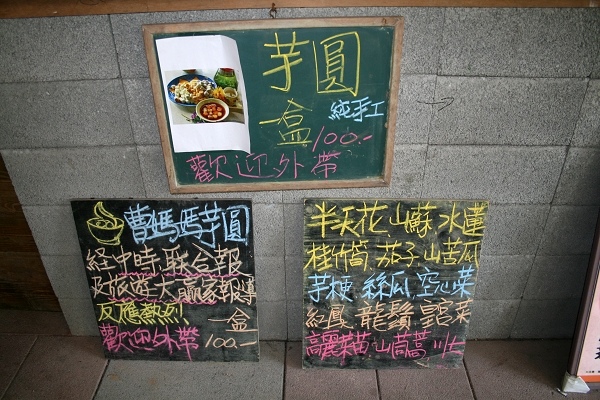 芋圓
一盒
純手工
100.-
歡迎外帶
曹媽媽芋圓
経中時.聯合報
及旅遊大贏家報導
反應熱烈 一盒
歡迎外帶 100.-
半天花.山蘇.水蓮
桂竹筍.茄子.山苦瓜
芋梗.絲瓜.空心菜
紅鳳.龍鬚.宮菜
高麗菜苗.山茼蒿